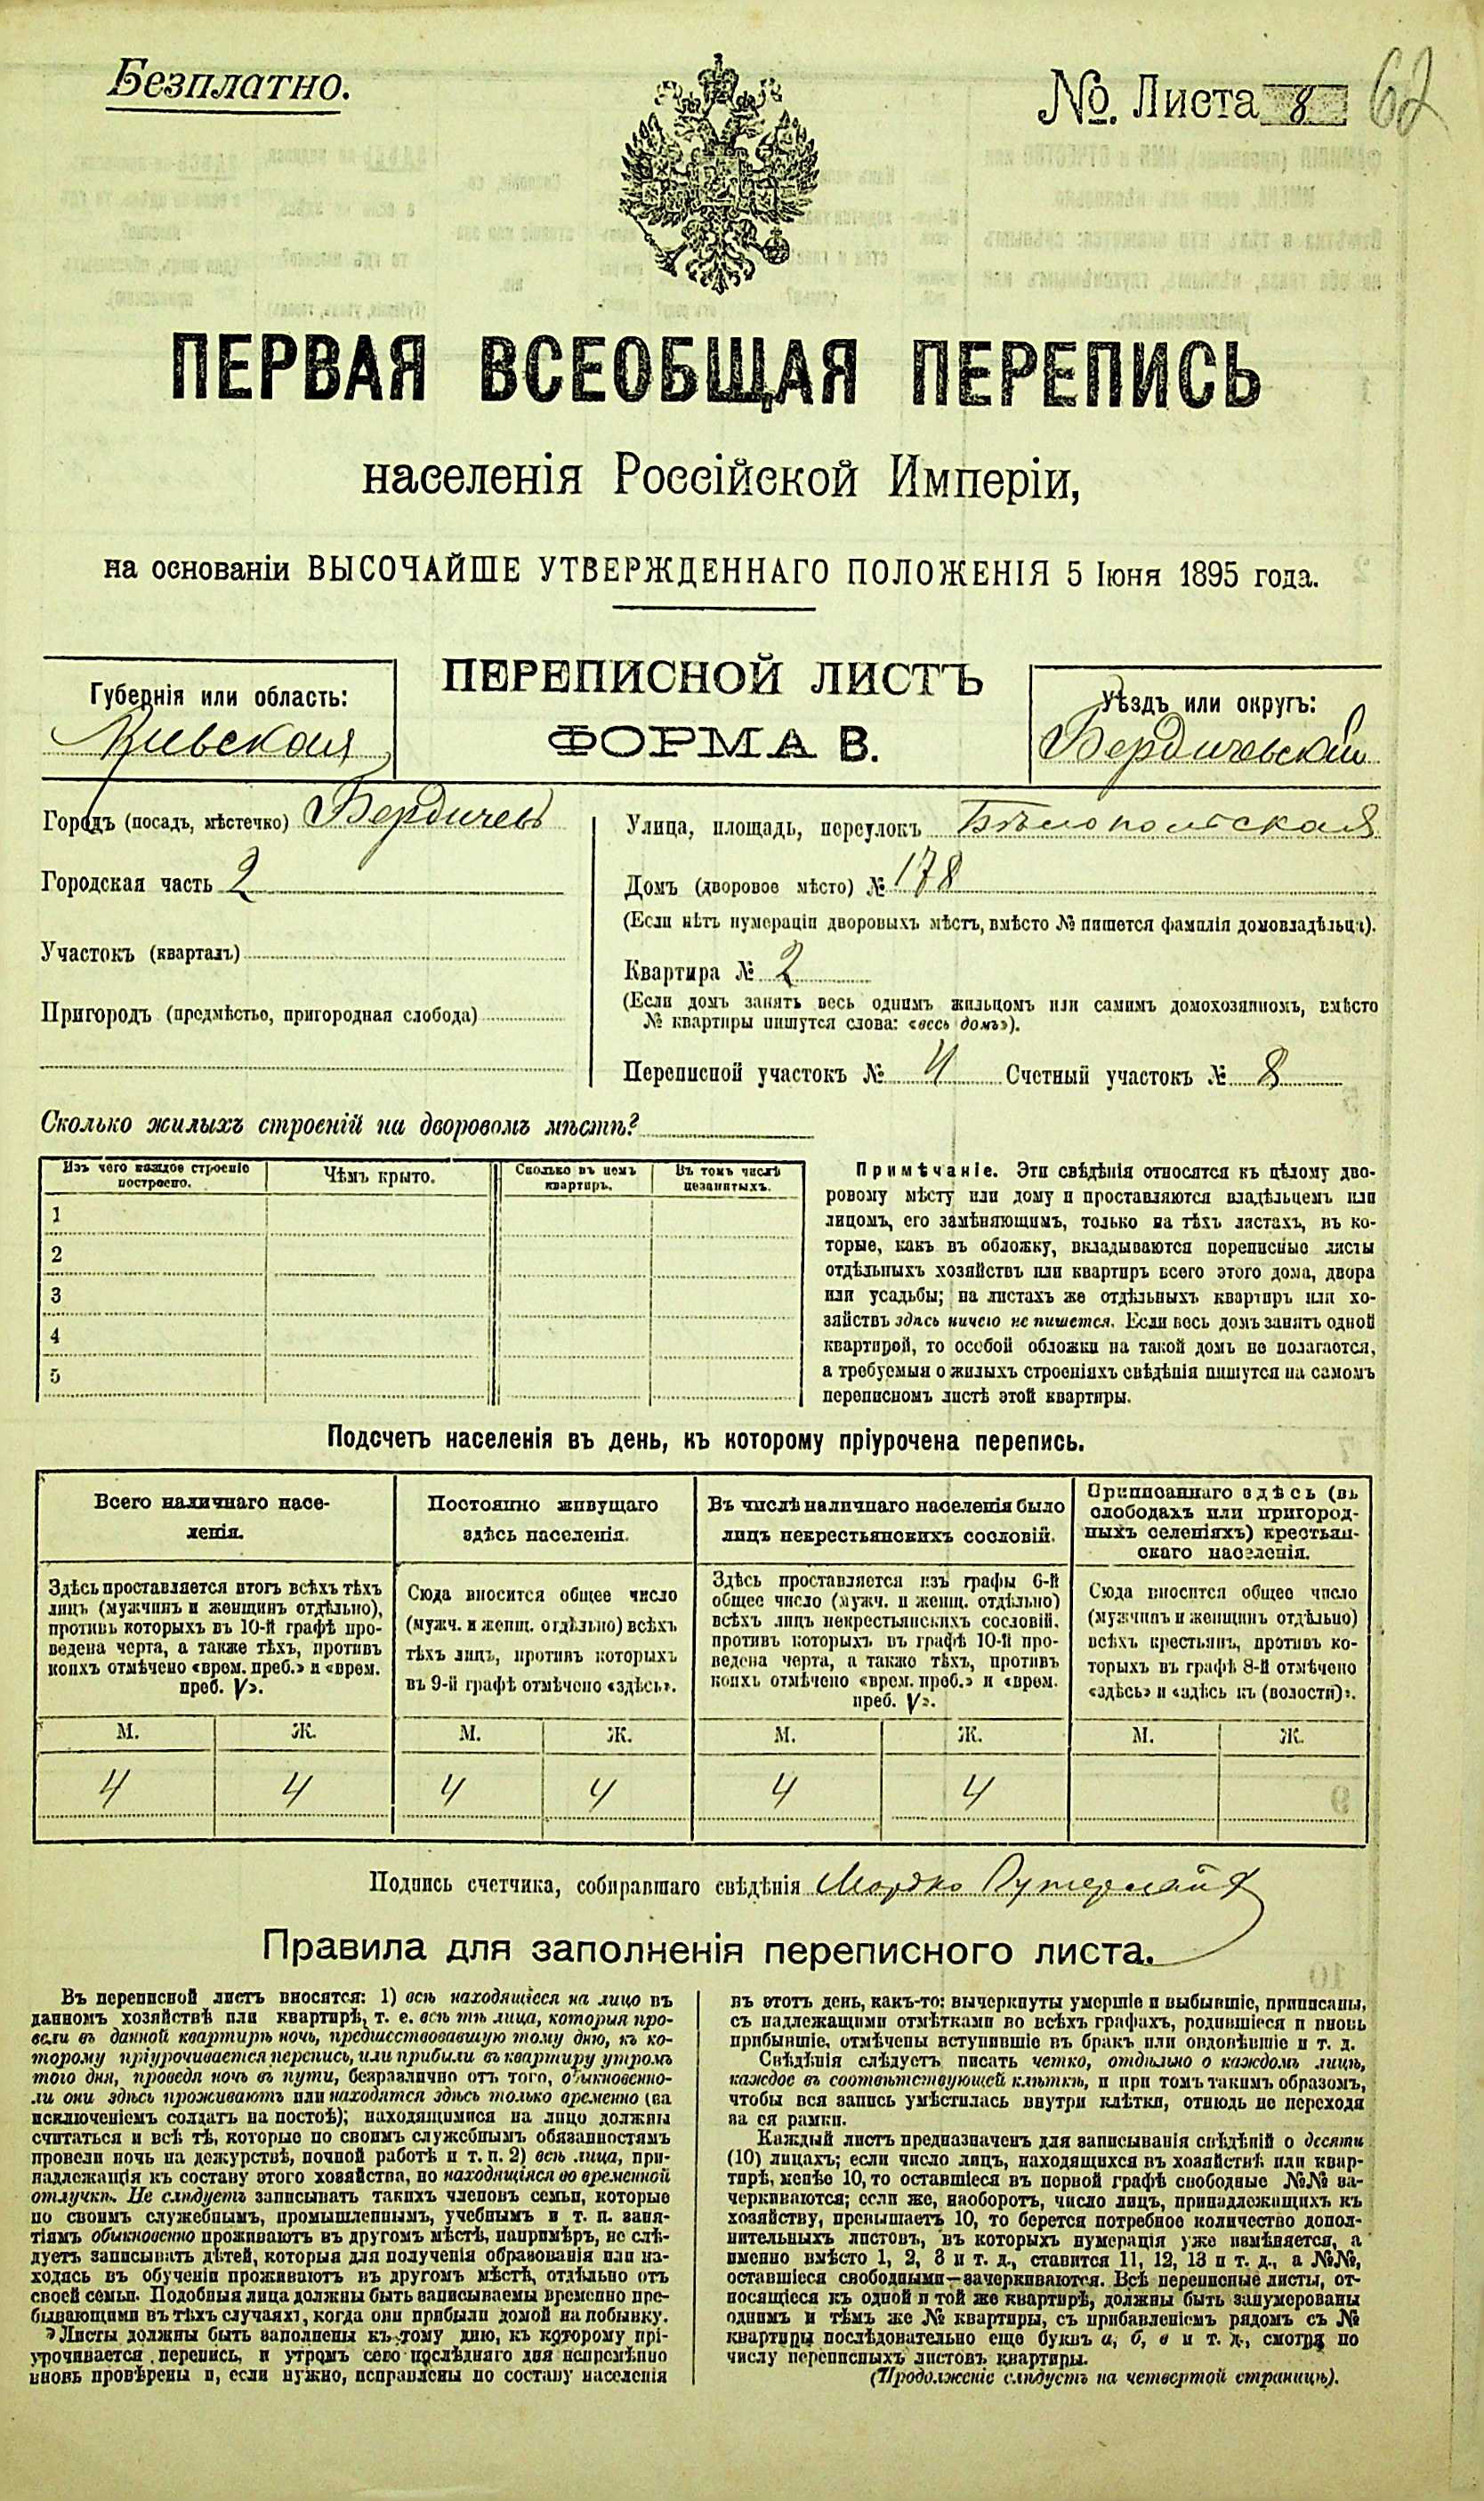 Безплатно.
№. Листа 8 62
ПЕРВАЯ ВСЕОБЩАЯ ПЕРЕПИСЬ
населенія Россійской Имперіи,
на основаніи ВЫСОЧАЙШЕ УТВЕРЖДЕННАГО ПОЛОЖЕНІЯ 5 Іюня 1895 года.
ПЕРЕПИСНОЙ ЛИСТЪ
ФОРМА В.
Губернія или область:
Кіевская
Уѣздъ или округъ:
Бердичевскій
Городъ (посадъ, мѣстечко) Бердичевъ
Городская часть 2
Участокъ (кварталъ)
Пригородъ (предмѣстье, пригородная слобода)
Улица, площадь, переулокъ Бѣлопольская
Домъ (дворовое мѣсто) № 178
(Если нѣтъ нумераціи дворовыхъ мѣстъ, вмѣсто № пишется фамилія домовладѣльца).
Квартира № 2
(Если домъ занятъ весь однимъ жильцомъ или самимъ домохозяиномъ, вмѣсто
№ квартиры пишутся слова: «весь домъ»).
Переписной участокъ № 4 Счетный участокъ № 8
Сколько жилыхъ строеній на дворовомъ мѣстѣ?
Изъ чего каждое строеніе
построено.
Чѣмъ крыто.
Сколько въ немъ
квартиръ.
Въ томъ числѣ
незанятыхъ.
1
2
3
4
5
Примѣчаніе. Эти свѣдѣнія относятся къ цѣлому дво-
ровому мѣсту или дому и проставляются владѣльцемъ или
лицомъ, его замѣняющимъ, только на тѣхъ листахъ, въ ко-
торые, какъ въ обложку, вкладываются переписные листы
отдѣльныхъ хозяйствъ или квартиръ всего этого дома, двора
или усадьбы; на листахъ же отдѣльныхъ квартиръ или хо-
зяйствъ здѣсь ничего не пишется. Если весь домъ занятъ одной
квартирой, то особой обложки на такой домъ не полагается,
а требуемыя о жилыхъ строеніяхъ свѣдѣнія пишутся на самомъ
переписномъ листѣ этой квартиры.
Подсчетъ населенія въ день, къ которому пріурочена перепись.
Всего наличнаго насе-
ленія.
Постоянно живущаго
здѣсь населенія.
Въ числѣ наличнаго населенія было
лицъ некрестьянскихъ сословій.
Приписаннаго здѣсь (въ
слободахъ или пригород-
ныхъ селеніяхъ) крестьян-
скаго населенія.
Здѣсь проставляется итогъ всѣхъ тѣхъ
лицъ (мужчинъ и женщинъ отдѣльно),
противъ которыхъ въ 10-й графѣ про-
ведена черта, а также тѣхъ, противъ
коихъ отмѣчено «врем. преб.» и «врем.
преб. V».
Сюда вносится общее число
(мужч. и женщ. отдѣльно) всѣхъ
тѣхъ лицъ, противъ которыхъ
въ 9-й графѣ отмѣчено «здѣсь».
Здѣсь проставляется изъ графы 6-й
общее число (мужч. и женщ. отдѣльно)
всѣхъ лицъ некрестьянскихъ сословій,
противъ которыхъ въ графѣ 10-й про-
ведена черта, а также тѣхъ, противъ
коихъ отмѣчено «врем. преб.» и «врем.
преб. V».
Сюда вносится общее число
(мужчинъ и женщинъ отдѣльно)
всѣхъ крестьянъ, противъ ко-
торыхъ въ графѣ 8-й отмѣчено
«здѣсь» и «здѣсь къ (волости)».
М. Ж. М. Ж. М. Ж. М. Ж.
4 4 4 4 4 4
Подпись счетчика, собиравшаго свѣдѣнія Мордко
Правила для заполненія переписного листа.
Въ переписной листъ вносятся: 1) всѣ находящіеся на лицо въ
данномъ хозяйствѣ или квартирѣ, т. е. всѣ тѣ лица, которыя про-
вели въ данной квартирѣ ночь, предшествовавшую тому дню, къ ко-
торому пріурочивается перепись, или прибыли въ квартиру утромъ
того дня, проведя ночь въ пути, безразлично отъ того, обыкновенно-
ли они здѣсь проживаютъ или находятся здѣсь только временно (за
исключеніемъ солдатъ на постоѣ); находящимися на лицо должны
считаться и всѣ тѣ, которые по своимъ служебнымъ обязанностямъ
провели ночь на дежурствѣ, ночной работѣ и т. п. 2) всѣ лица, при-
надлежащія къ составу этого хозяйства, но находящіяся во временной
отлучкѣ. Не слѣдуетъ записывать такихъ членовъ семьи, которые
по своимъ служебнымъ, промышленнымъ, учебнымъ и т. п. заня-
тіямъ обыкновенно проживаютъ въ другомъ мѣстѣ, напримѣръ, не слѣ-
дуетъ записывать дѣтей, которыя для полученія образованія или на-
ходясь въ обученіи проживаютъ въ другомъ мѣстѣ, отдѣльно отъ
своей семьи. Подобныя лица должны быть записываемы временно пре-
бывающими въ тѣхъ случаяхъ, когда они прибыли домой на побывку.
Листы должны быть заполнены къ тому дню, къ которому прі-
урочивается перепись, и утромъ сего послѣдняго дня непремѣнно
вновь провѣрены и, если нужно, исправлены по составу населенія
въ этотъ день, какъ-то: вычеркнуты умершіе и выбывшіе, приписаны,
съ надлежащими отмѣтками во всѣхъ графахъ, родившіеся и вновь
прибывшіе, отмѣчены вступившіе въ бракъ или овдовѣвшіе и т. д.
Свѣдѣнія слѣдуетъ писать четко, отдѣльно о каждомъ лицѣ,
каждое въ соотвѣтствующей клѣткѣ, и при томъ такимъ образомъ,
чтобы вся запись умѣстилась внутри клѣтки, отнюдь не переходя
за ея рамки.
Каждый листъ предназначенъ для записыванія свѣдѣній о десяти
(10) лицахъ; если число лицъ, находящихся въ хозяйствѣ или квар-
тирѣ, менѣе 10, то оставшіеся въ первой графѣ свободные №№ за-
черкиваются; если же, наоборотъ, число лицъ, принадлежащихъ къ
хозяйству, превышаетъ 10, то берется потребное количество допол-
нительныхъ листовъ, въ которыхъ нумерація уже измѣняется, а
именно вмѣсто 1, 2, 3 и т. д., ставится 11, 12, 13 и т. д., а №№,
оставшіеся свободными—зачеркиваются. Всѣ переписные листы, от-
носящіеся къ одной и той же квартирѣ, должны быть занумерованы
однимъ и тѣмъ же № квартиры, съ прибавленіемъ рядомъ съ №
квартиры послѣдовательно еще буквъ а, б, в и т. д., смотря по
числу переписныхъ листовъ квартиры.
(Продолженіе слѣдуетъ на четвертой страницѣ).